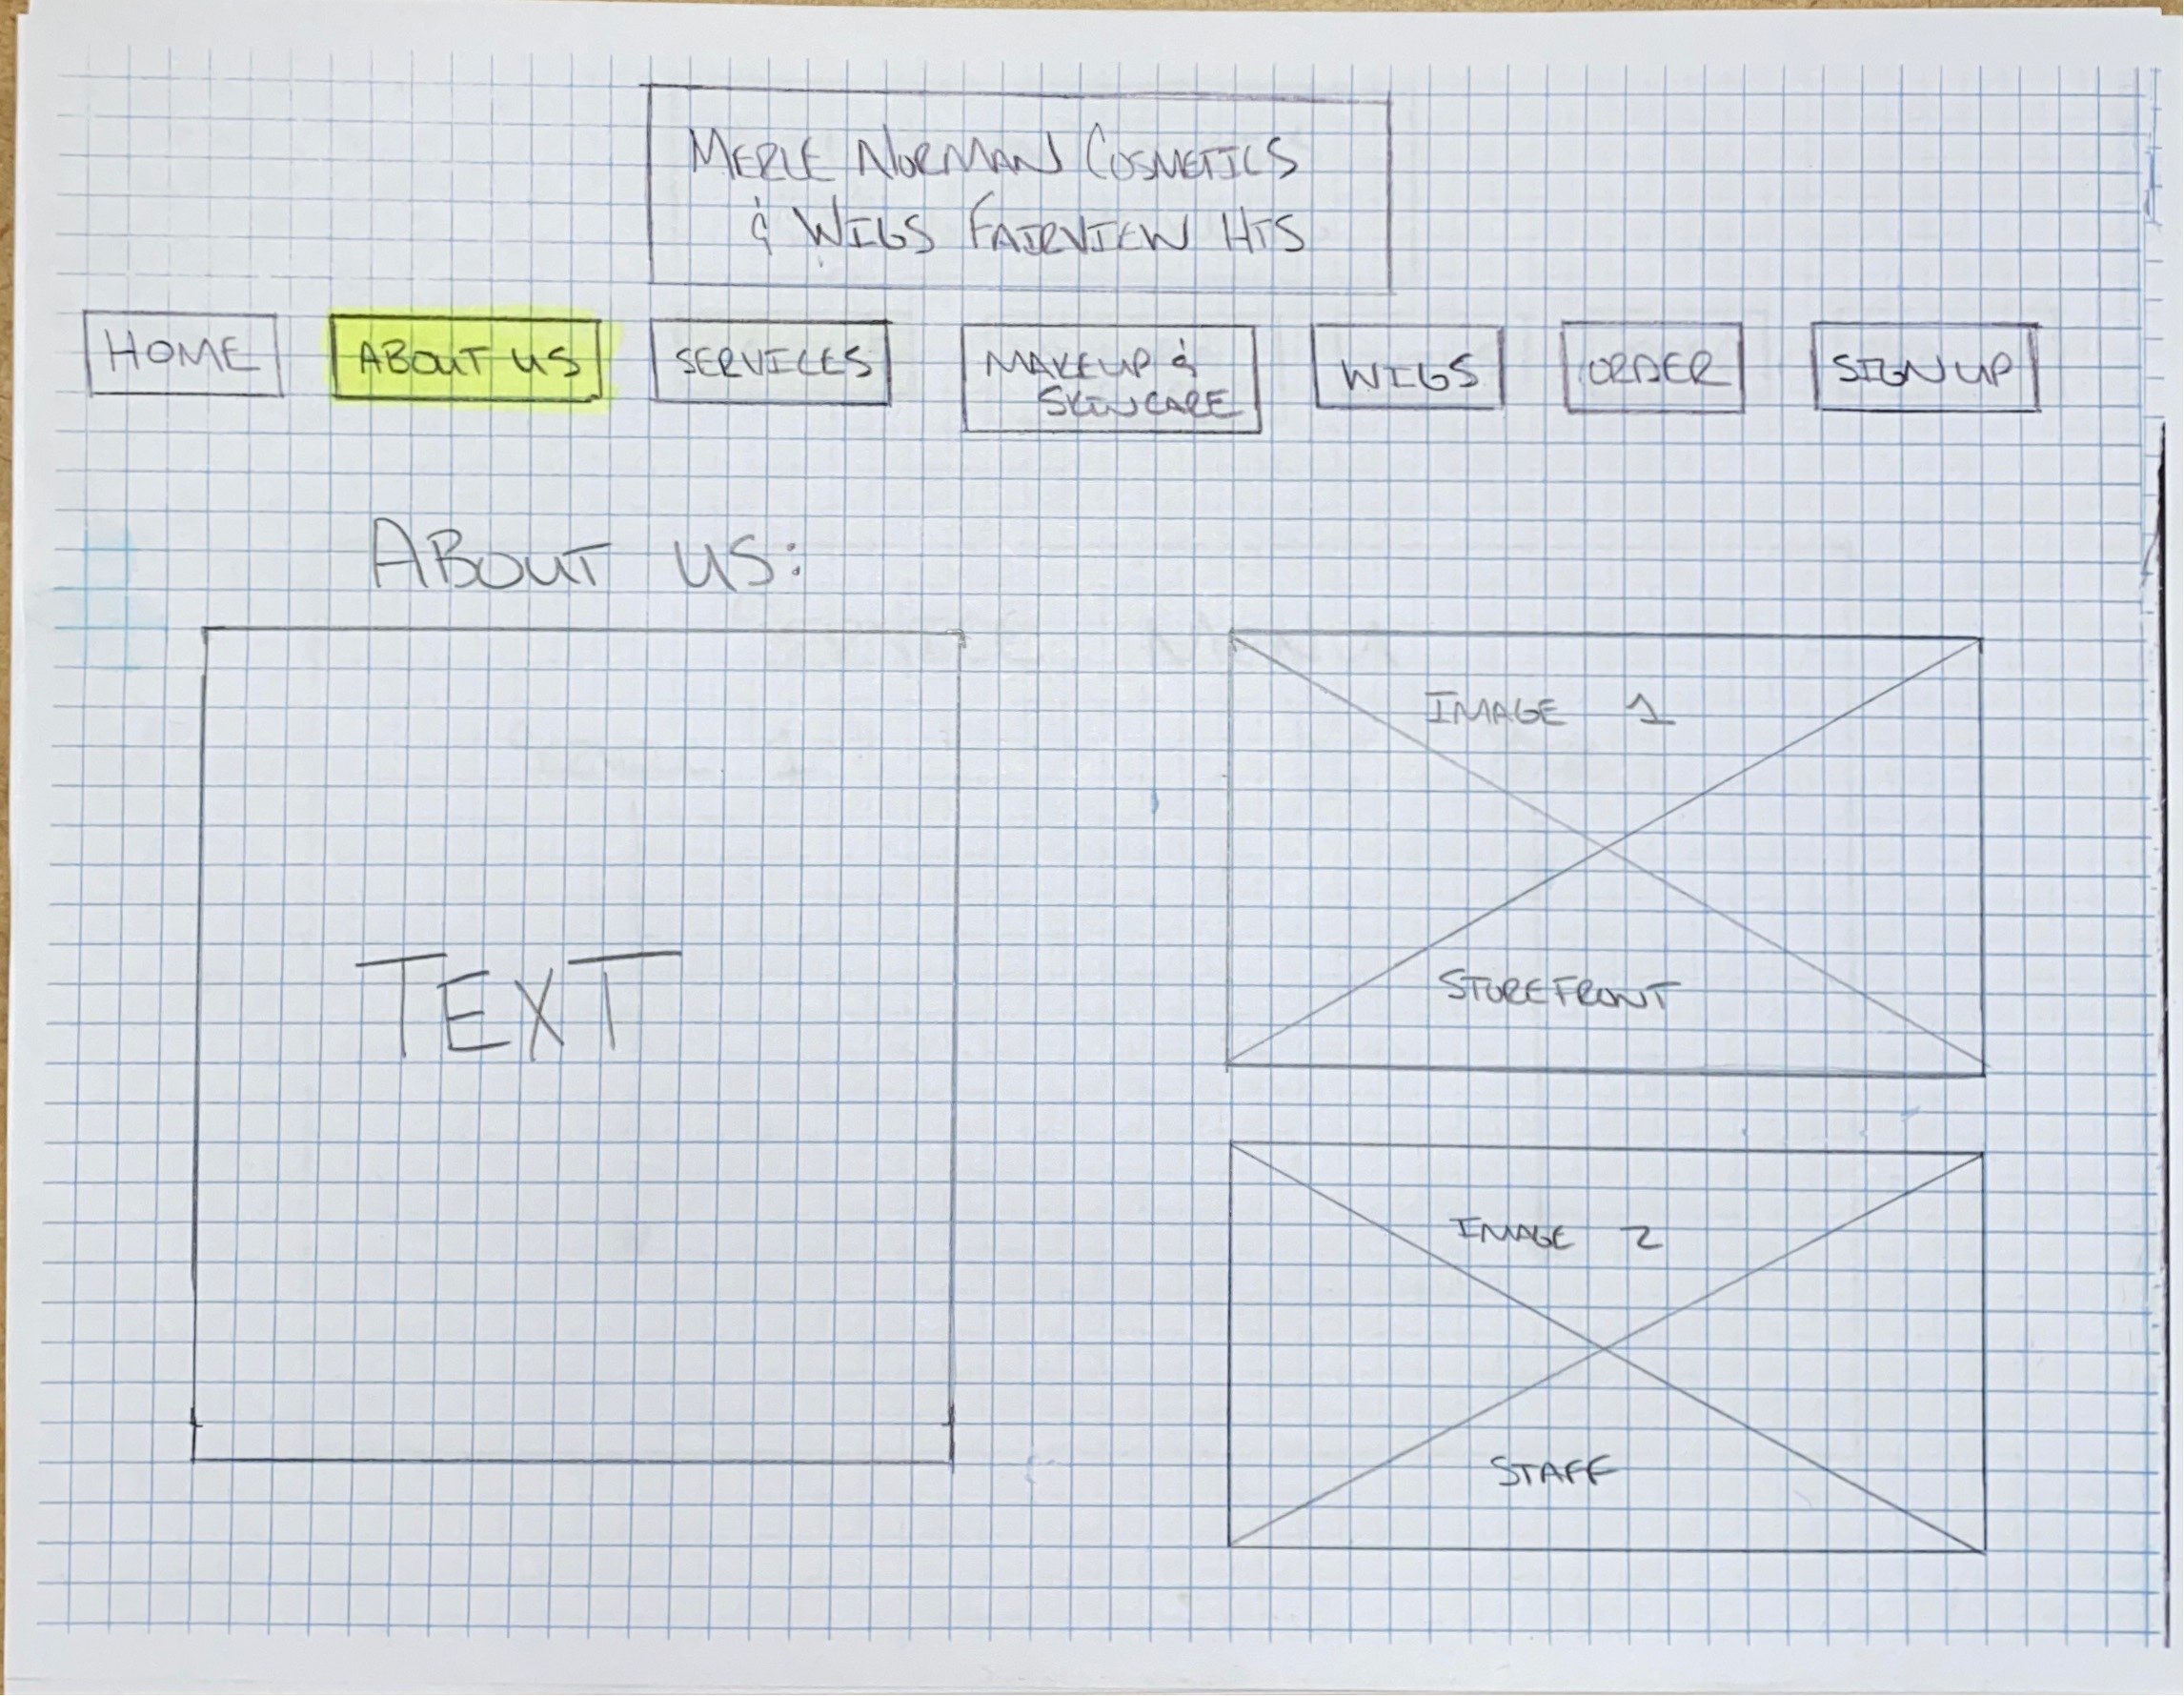 MERLE NORMAN COSMETICS
& WIGS FAIRVIEW HTS
HOME
ABOUT US
SERVICES
MAKEUP &
SKINCARE
WIGS
ORDER
SIGN UP
ABOUT US:
TEXT
IMAGE 1
STOREFRONT
IMAGE 2
STAFF